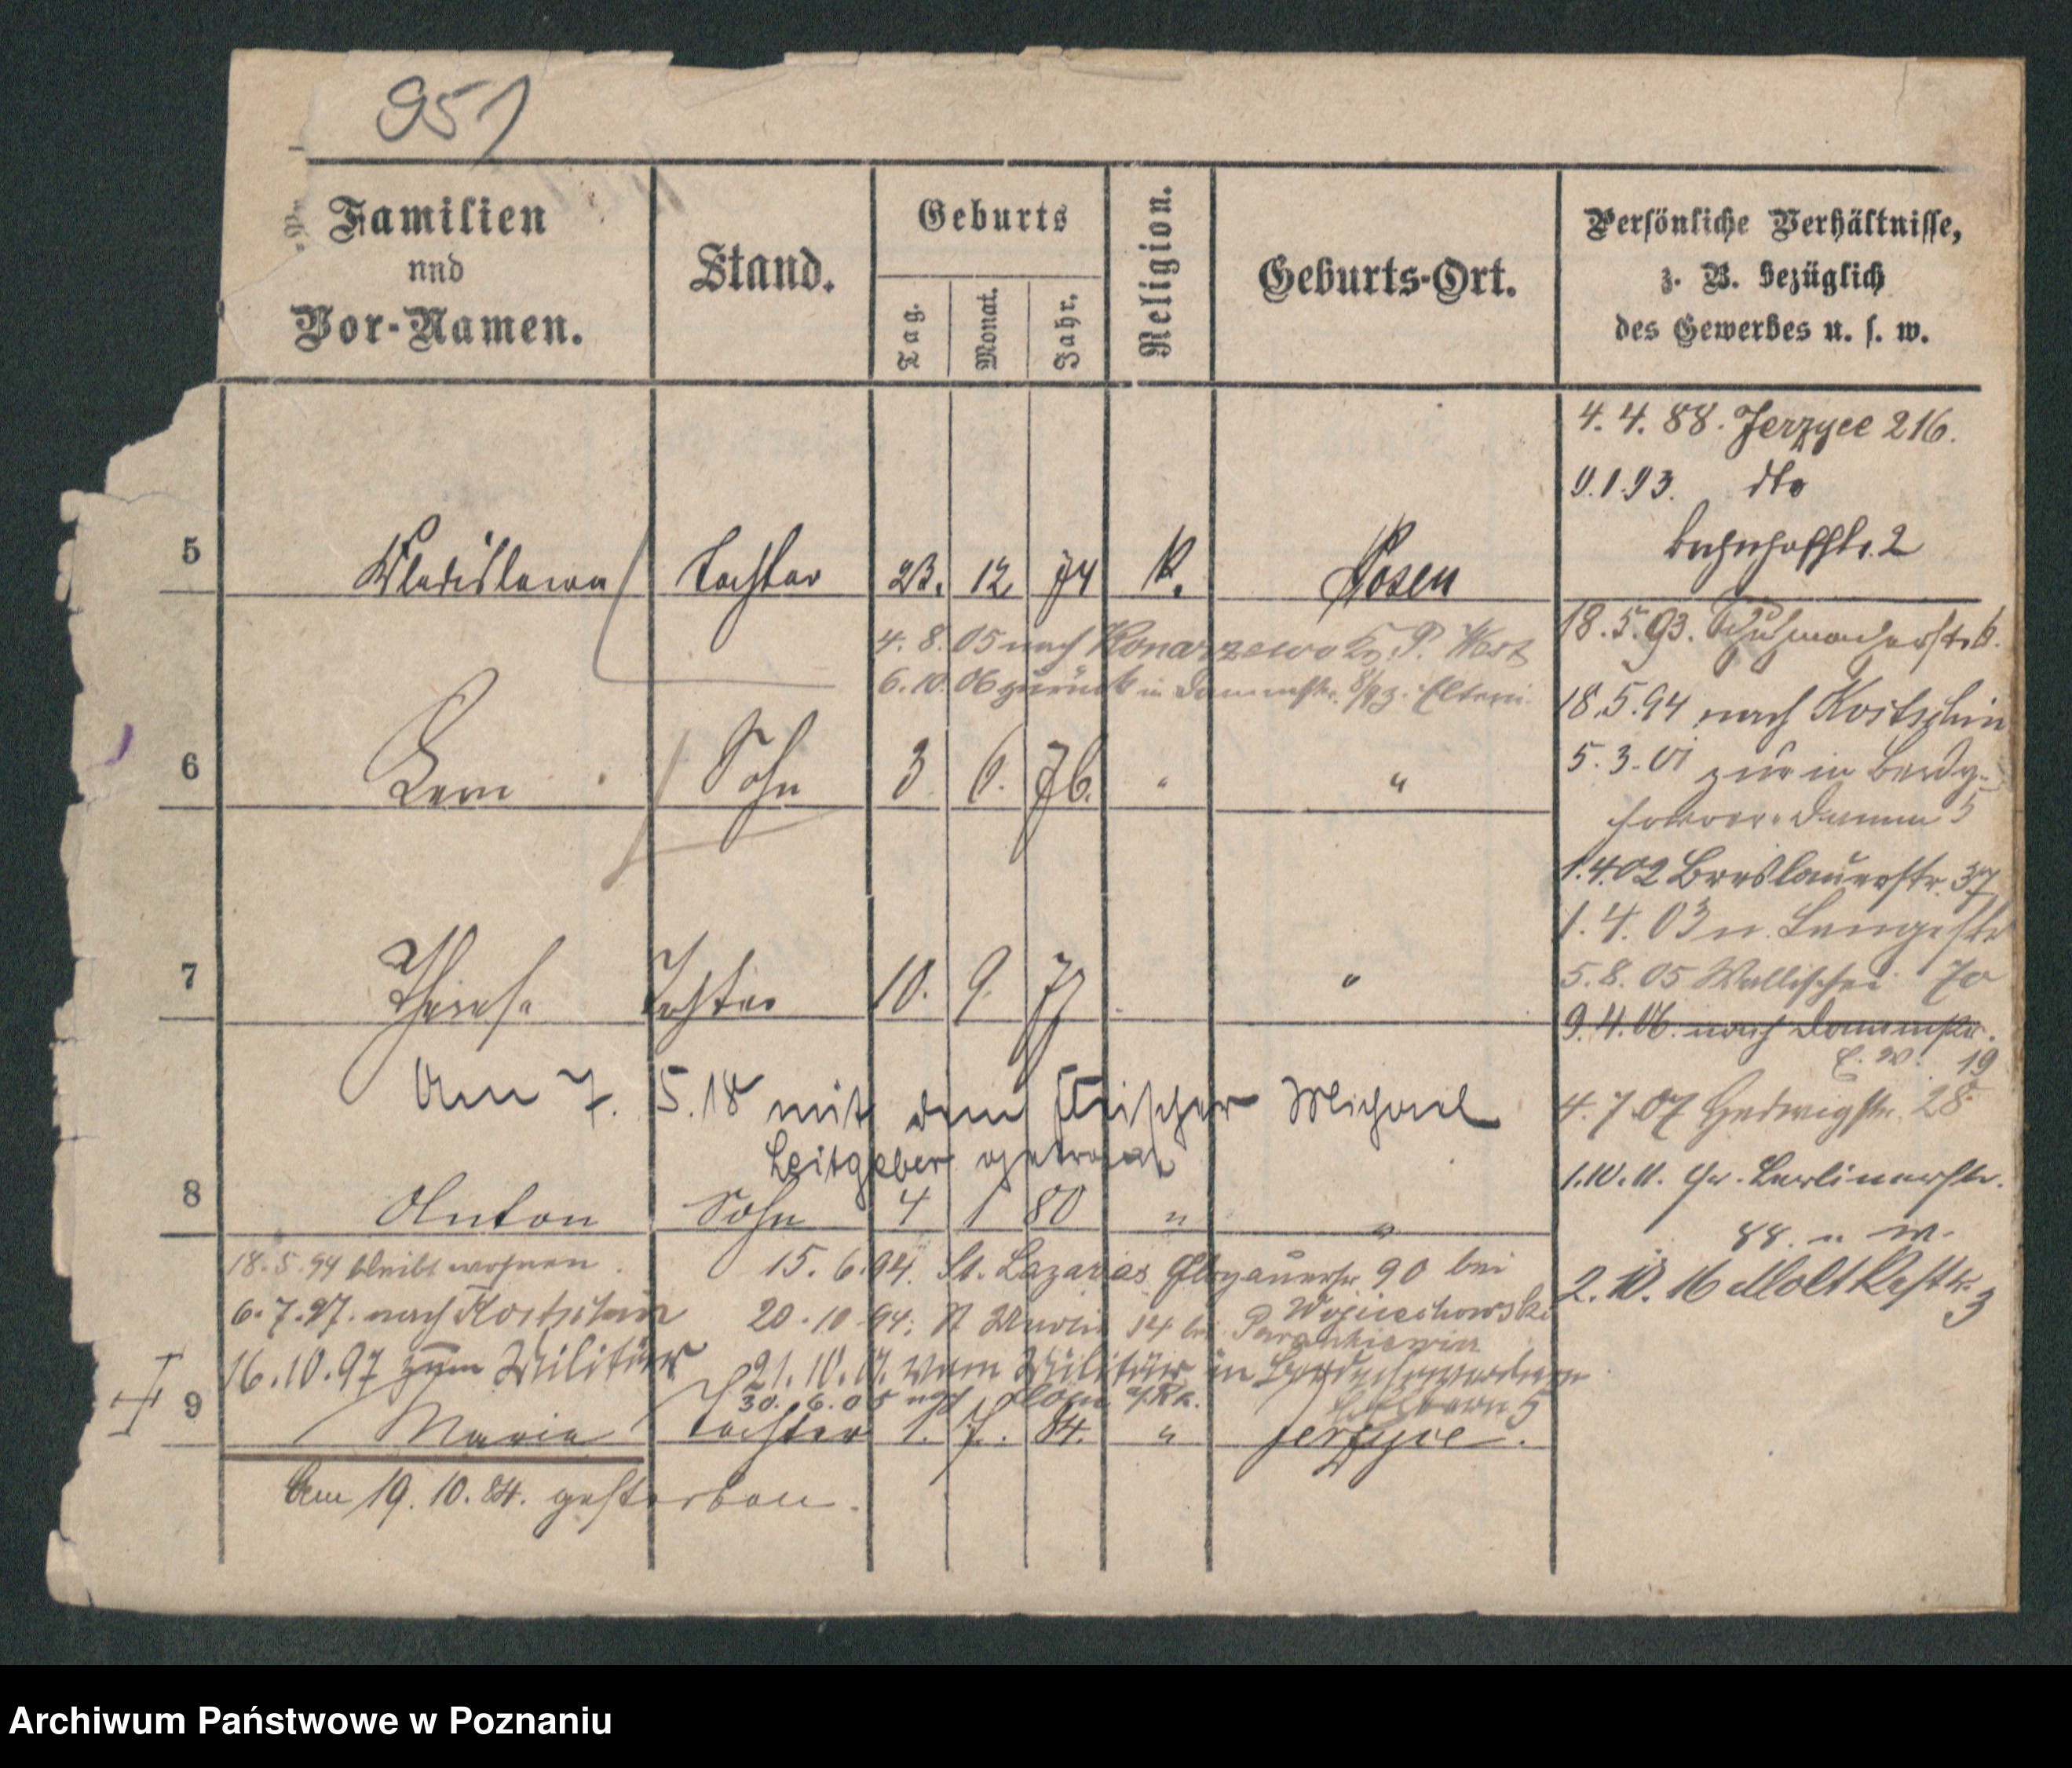 951
Familien
und
Vor-Namen.
Stand.
Geburts
Tag.
Monat.
Jahr.
Religion.
Geburts-Ort.
Persönliche Verhältnisse,
z. B. bezüglich
des Gewerbes u. s. w.
4. 4. 88. Jerzyce 216.
9.1.93. dto
Bahnhofstr. 2
5 Wladislawa Tochter 23. 12 74 K. Posen
4. 8. 05 nach Konarzewo Kr. P. West
6. 10. 06 zurück in Dammstr. 8/9 z. Eltern
18. 5. 93. Schuhmacherstr. 6.
18. 5. 94 nach Kostschin
5. 3. 01 zur in Berdy-
chower Damm 5
6 Leon Sohn 3 6. 76. " "
1.4.02 Breslauerstr. 37
1. 4. 03 n. Langestr
5. 8. 05 Wallischei 70
7 Therese Tochter 10. 9. 77 "
9. 4. 06. nach Dammstr.
E. W. 19
Am 7. 5. 18 mit dem Fleischer Michael
Leitgeber getraut
4. 7. 07 Hedwigstr. 28
1.10.11. Gr. Berlinerstr.
88. n W.
8 Anton Sohn 4 1 80 " "
18. 5. 94 bleibt wohnen.
15. 6. 94. St. Lazarus Glogauerstr 90 bei
Wojciechowski
6. 7. 97. nach Kostschin
20. 10 94. St Martin 14 bei
2. 10. 16 Moltkestr. 3
16. 10. 97 zum Militär
21. 10. vom Militär in Berdychowerdamm
30. 6. 05 nach
5
9 Maria Tochter 1. 7. 84. " Jerzyce.
Am 19. 10. 84. gestorben.
Archiwum Państwowe w Poznaniu